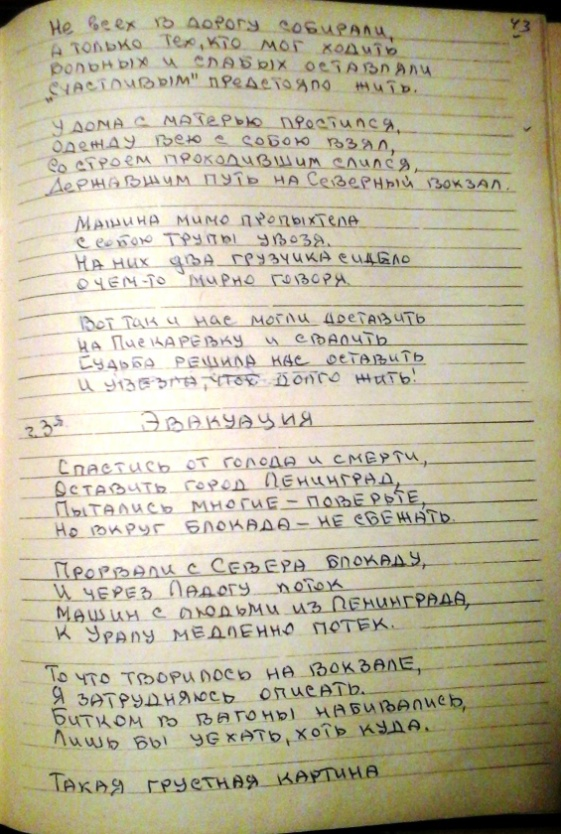 43
Не всех в дорогу собирали,
А только тех, кто мог ходить
Больных и слабых оставляли
"Счастливым" предстояло жить.
У дома с матерью простился,
Одежду всю с собою взял,
Со строем проходившим слился,
Державшим путь на Северный вокзал.
Машина мимо пропыхтела
С собою трупы увозя.
На них два грузчика сидело
О чем-то мирно говоря.
Вот так и нас могли доставить
На Пискаревку и свалить
Судьба решила нас оставить
И увезла, чтоб долго жить!
г. 3я
Эвакуация
Спастись от голода и смерти,
Оставить город Ленинград,
Пытались многие – поверьте,
Но вкруг блокада – не сбежать.
Прорвали с Севера блокаду,
И через Ладогу поток
Машин с людьми из Ленинграда,
К Уралу медленно потек.
То что творилось на вокзале,
Я затрудняюсь описать.
Битком в вагоны набивались,
Лишь бы уехать, хоть куда.
Такая грустная картина